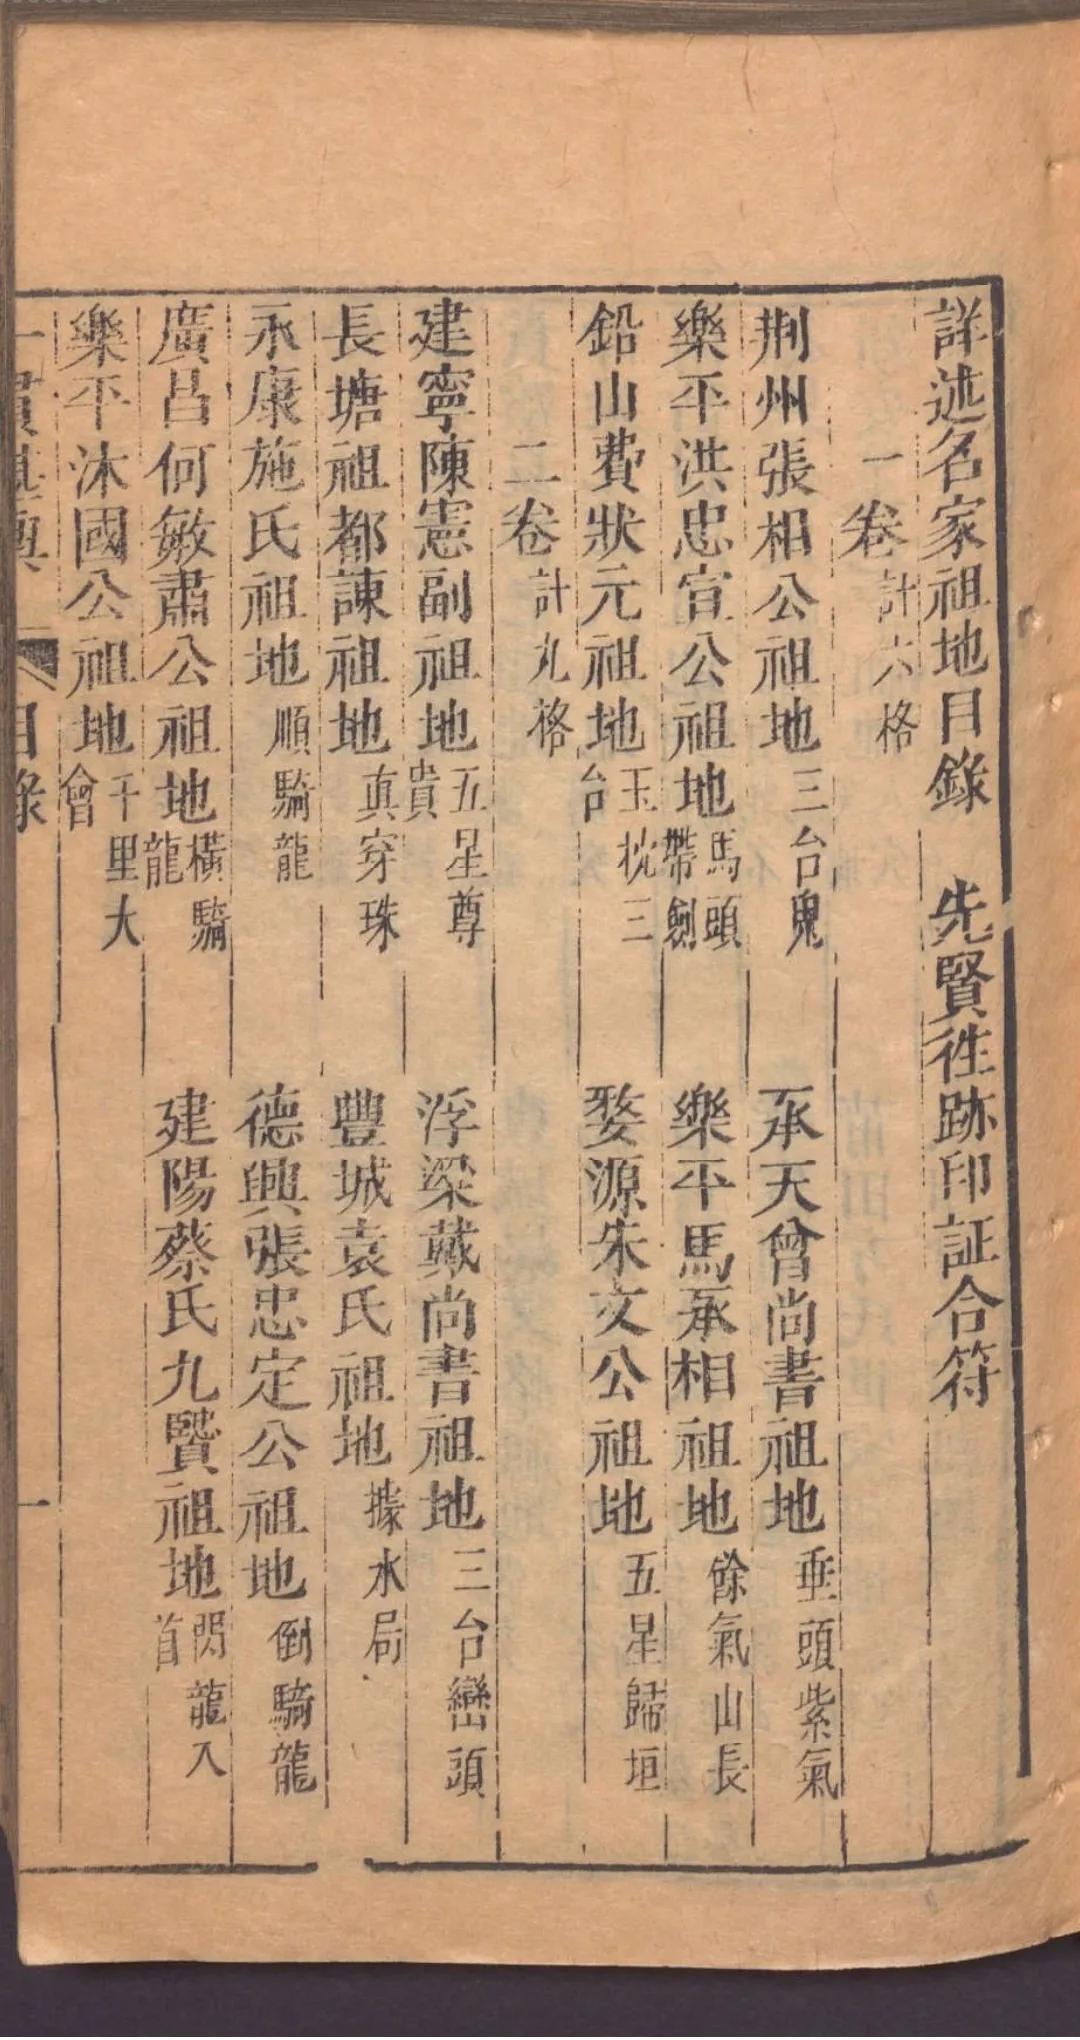 詳述名家祖地目錄　先賢徃跡印証合符
一卷計六格
荆州張相公祖地三台鬼　承天曾尚書祖地垂頭紫氣
樂平洪忠宣公祖地馬頭帶劍　樂平馬承相祖地餘氣山長
鉛山費狀元祖地玉枕三台　婺源朱文公祖地五星歸垣
二卷計九格
建寧陳憲副祖地五星尊貴　浮梁戴尚書祖地三台巒頭
長塘祖都諫祖地真穿珠　豐城袁氏祖地據水局
永康施氏祖地順騎龍　德興張忠定公祖地倒騎龍
廣昌何敏肅公祖地橫騎龍　建陽蔡氏九賢祖地閃龍入首
樂平沐國公祖地千里大會
一貫 目錄 一